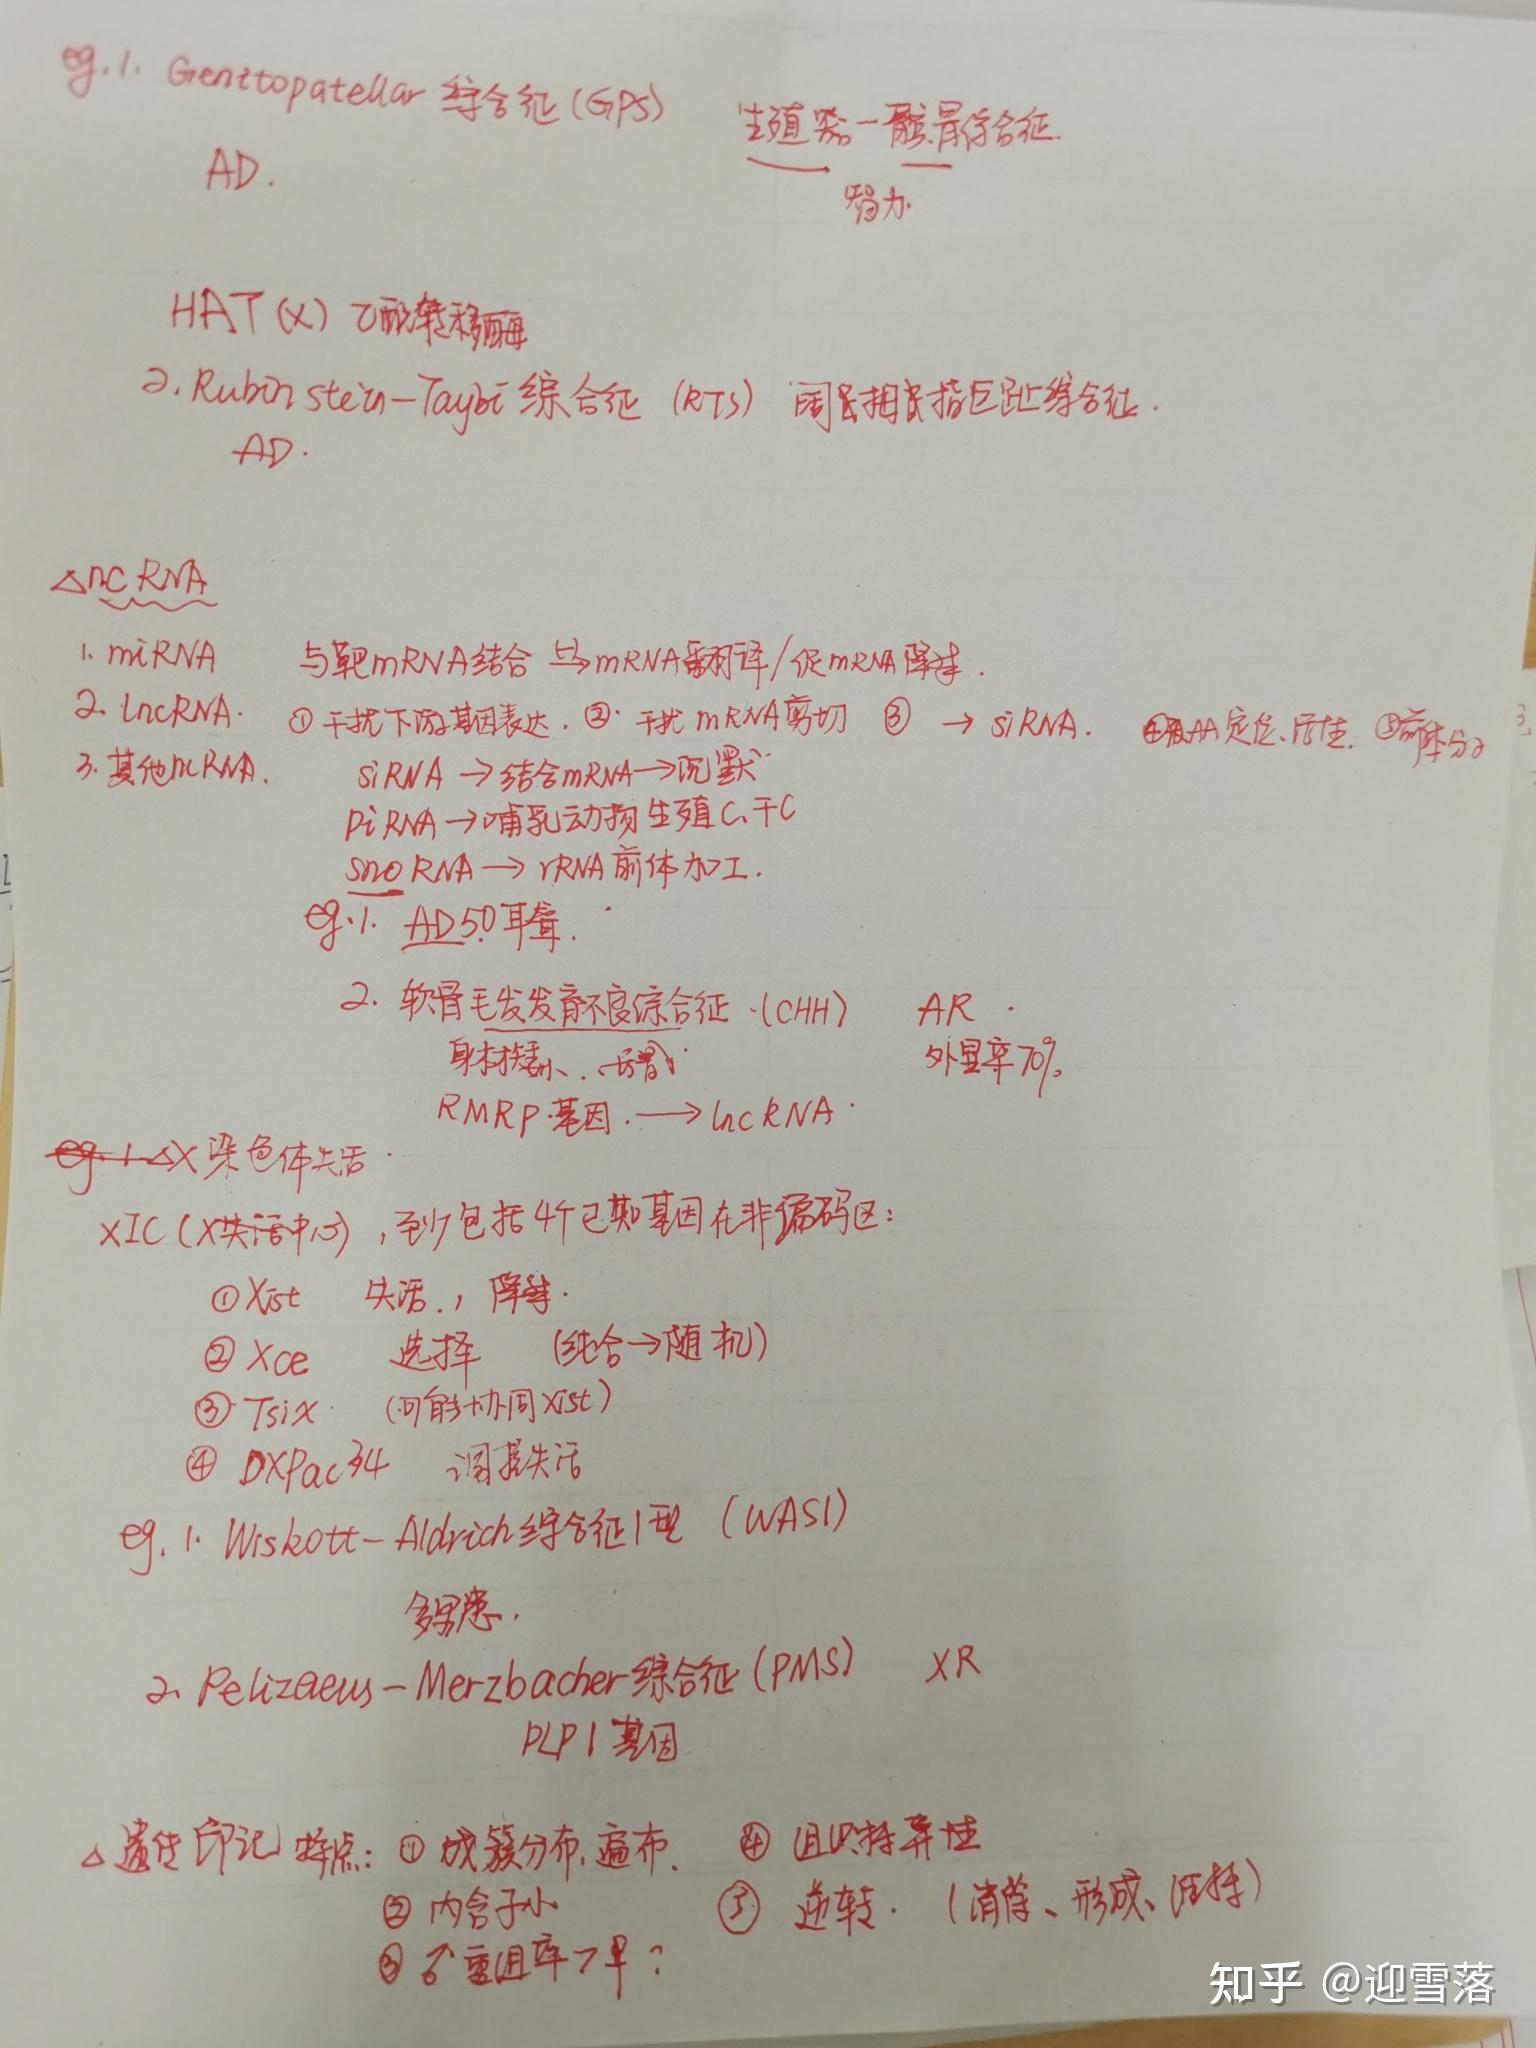 eg.1. Genitopatellar 综合征(GPS) 生殖器-髌骨综合征.
AD. 智力.
HAT(X) 乙酰转移酶
2. Rubinstein-Taybi 综合征 (RTS) 阔拇指巨趾综合征.
AD.
△ncRNA
1. miRNA 与靶mRNA结合 mRNA翻译/促mRNA降解.
2. lncRNA. ①干扰下游基因表达. ②干扰mRNA剪切 ③ → siRNA. ④ 定位、活性. ⑤前体分子
3. 其他ncRNA. siRNA → 结合mRNA → 沉默
piRNA → 哺乳动物生殖C、干C
snoRNA → rRNA前体加工.
eg.1. AD50耳聋.
2. 软骨毛发发育不良综合征.(CHH) AR.
身材矮小、 外显率70%
RMRP基因. → lncRNA.
eg.1 △X染色体失活.
XIC(X失活中心), 至少包括4个已知基因在非编码区:
①Xist 失活., 降解.
②Xce 选择 (纯合→随机)
③Tsix (可能协同Xist)
④ DXPac34 调控失活
eg.1. Wiskott-Aldrich综合征1型 (WAS1)
多男患.
2. Pelizaeus-Merzbacher综合征(PMS) XR
PLP1基因
△遗传印记特点: ①成簇分布,遍布. ④组织特异性
②内含子小 ⑤ 逆转. (消除、形成、维持)
③♂重组率>♀?
知乎 @迎雪落